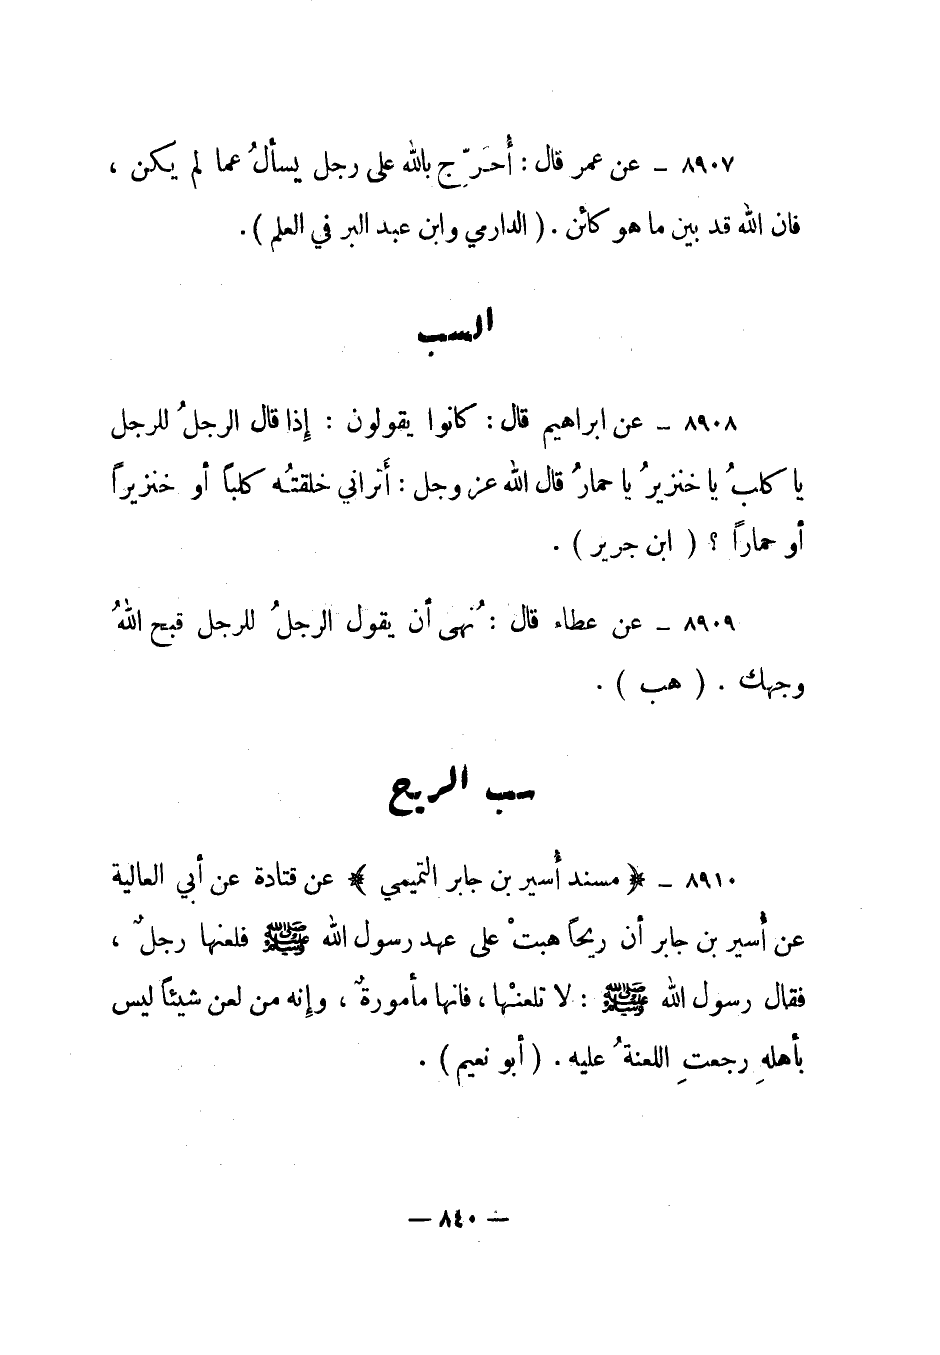 ٨٩٠٧ ـ عن عمر قال : أُحَرِّج بالله على رجل يسألُ عما لم يكن ،
فان الله قد بين ما هو كائن . ( الدارمي وابن عبد البر في العلم ) .
السب
٨٩٠٨ ـ عن ابراهيم قال : كانوا يقولون : إذا قال الرجلُ للرجل
يا كلبُ يا خنزيرُ يا حمارُ قال الله عز وجل : أَتراني خلقتُه كلباً أو خنزيراً
أو حماراً ؟ ( ابن جرير ) .
٨٩٠٩ ـ عن عطاء قال : نُهى أن يقول الرجلُ للرجل قبح اللهُ
وجهك . ( هب ) .
سب الريح
٨٩١٠ ـ ﴿ مسند أُسير بن جابر التميمي ﴾ عن قتادة عن أبي العالية
عن أُسير بن جابر أن ريحاً هبتْ على عهد رسول الله ﷺ فلعنها رجلٌ ،
فقال رسول الله ﷺ : لا تلعنْها ، فانها مأمورةٌ ، وإنه من لعن شيئاً ليس
بأهلهِ رجعتِ اللعنةُ عليه . ( أبو نعيم ) .
— ٨٤٠ —